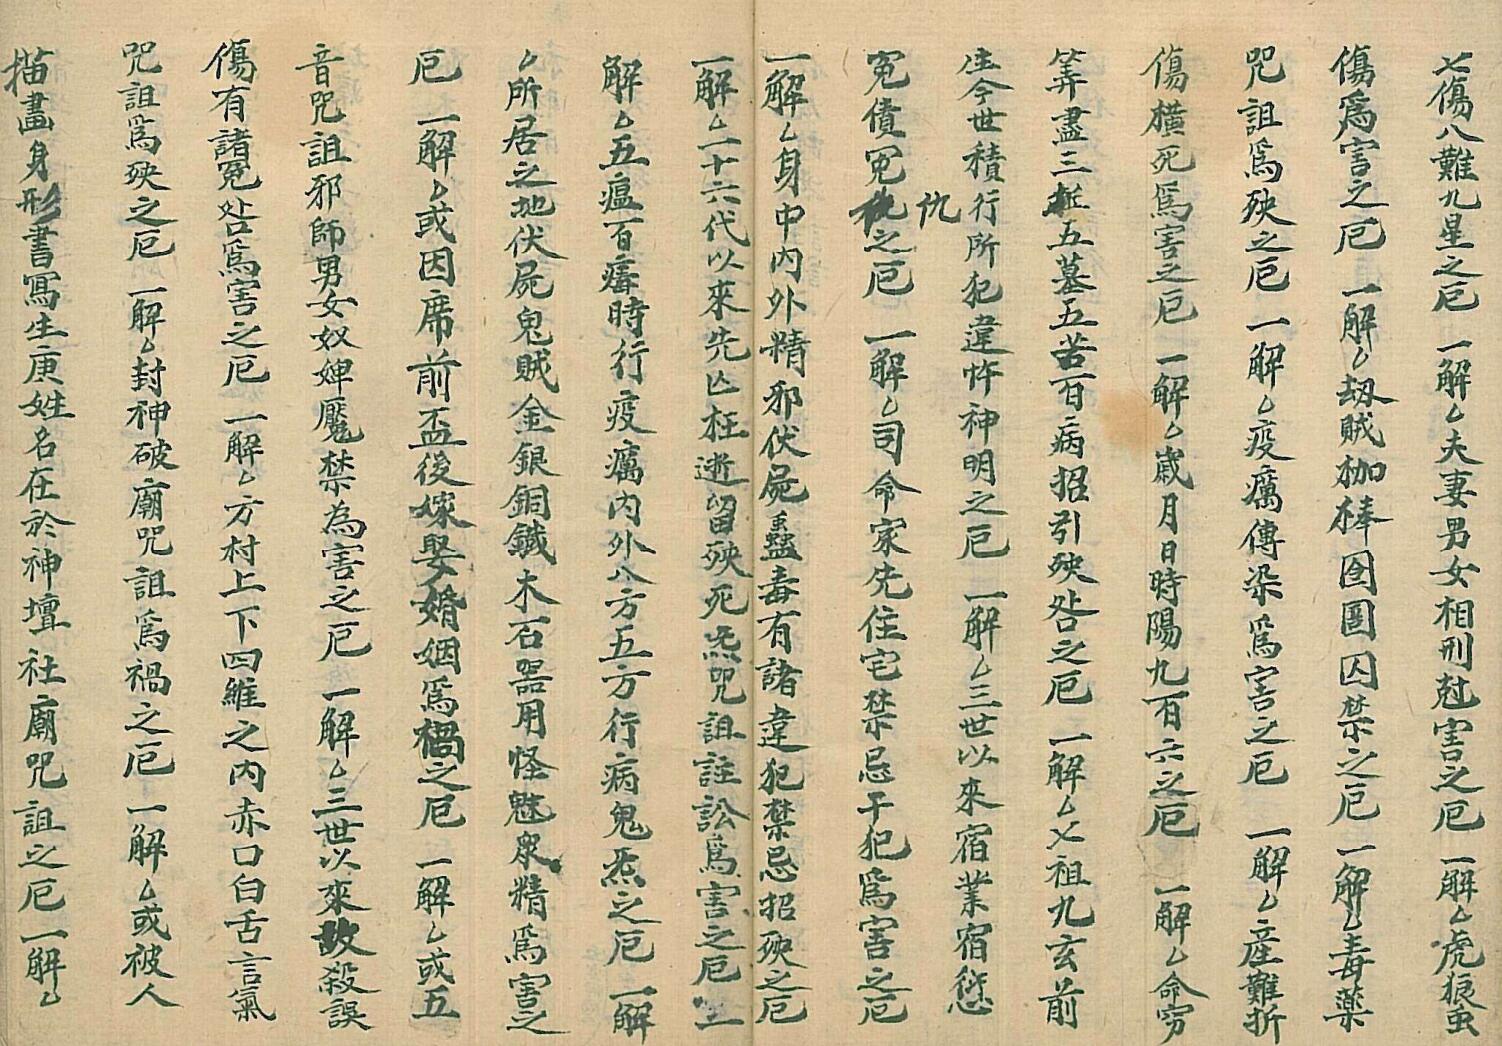 七傷八難九星之厄 一解〻夫妻男女相刑尅害之厄 一解〻虎狼虫
傷爲害之厄 一解〻劫賊枷棒囹圄囚禁之厄 一解〻毒藥
咒詛爲殃之厄 一解〻疫癘傳染爲害之厄 一解〻產難折
傷橫死爲害之厄 一解〻歲月日時陽九百六之厄 一解〻命穷
筭盡三五墓五苦百病招引殃咎之厄 一解〻七祖九玄前
生今世積行所犯違忤神明之厄 一解〻三世以來宿業宿愆
冤債冤仇之厄 一解〻司命家先住宅禁忌干犯爲害之厄
一解〻身中內外精邪伏屍蠱毒有諸違犯禁忌招殃之厄
一解〻二十六代以來先亡枉逝留殃死炁咒詛註訟爲害之厄 一
解〻五瘟百瘴時行疫癘内外八方五方行病鬼炁之厄 一解
〻所居之地伏屍鬼賊金銀銅鐵木石器用怪魅眾精爲害之
厄 一解〻或因席前盃後嫁娶婚姻爲禍之厄 一解〻或五
音咒詛邪師男女奴婢魘禁為害之厄 一解〻三世以來故殺誤
傷有諸冤咎爲害之厄 一解〻方村上下四維之內赤口白舌言氣
咒詛爲殃之厄 一解〻封神破廟咒詛爲禍之厄 一解〻或被人
描畫身形書寫生庚姓名在於神壇社廟咒詛之厄 一解〻